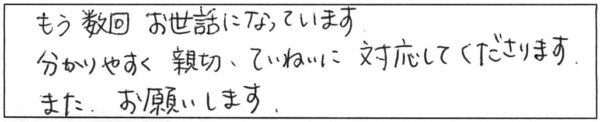 もう数回 お世話になっています.
分かりやすく 親切、ていねいに 対応してくださります.
また. お願いします.